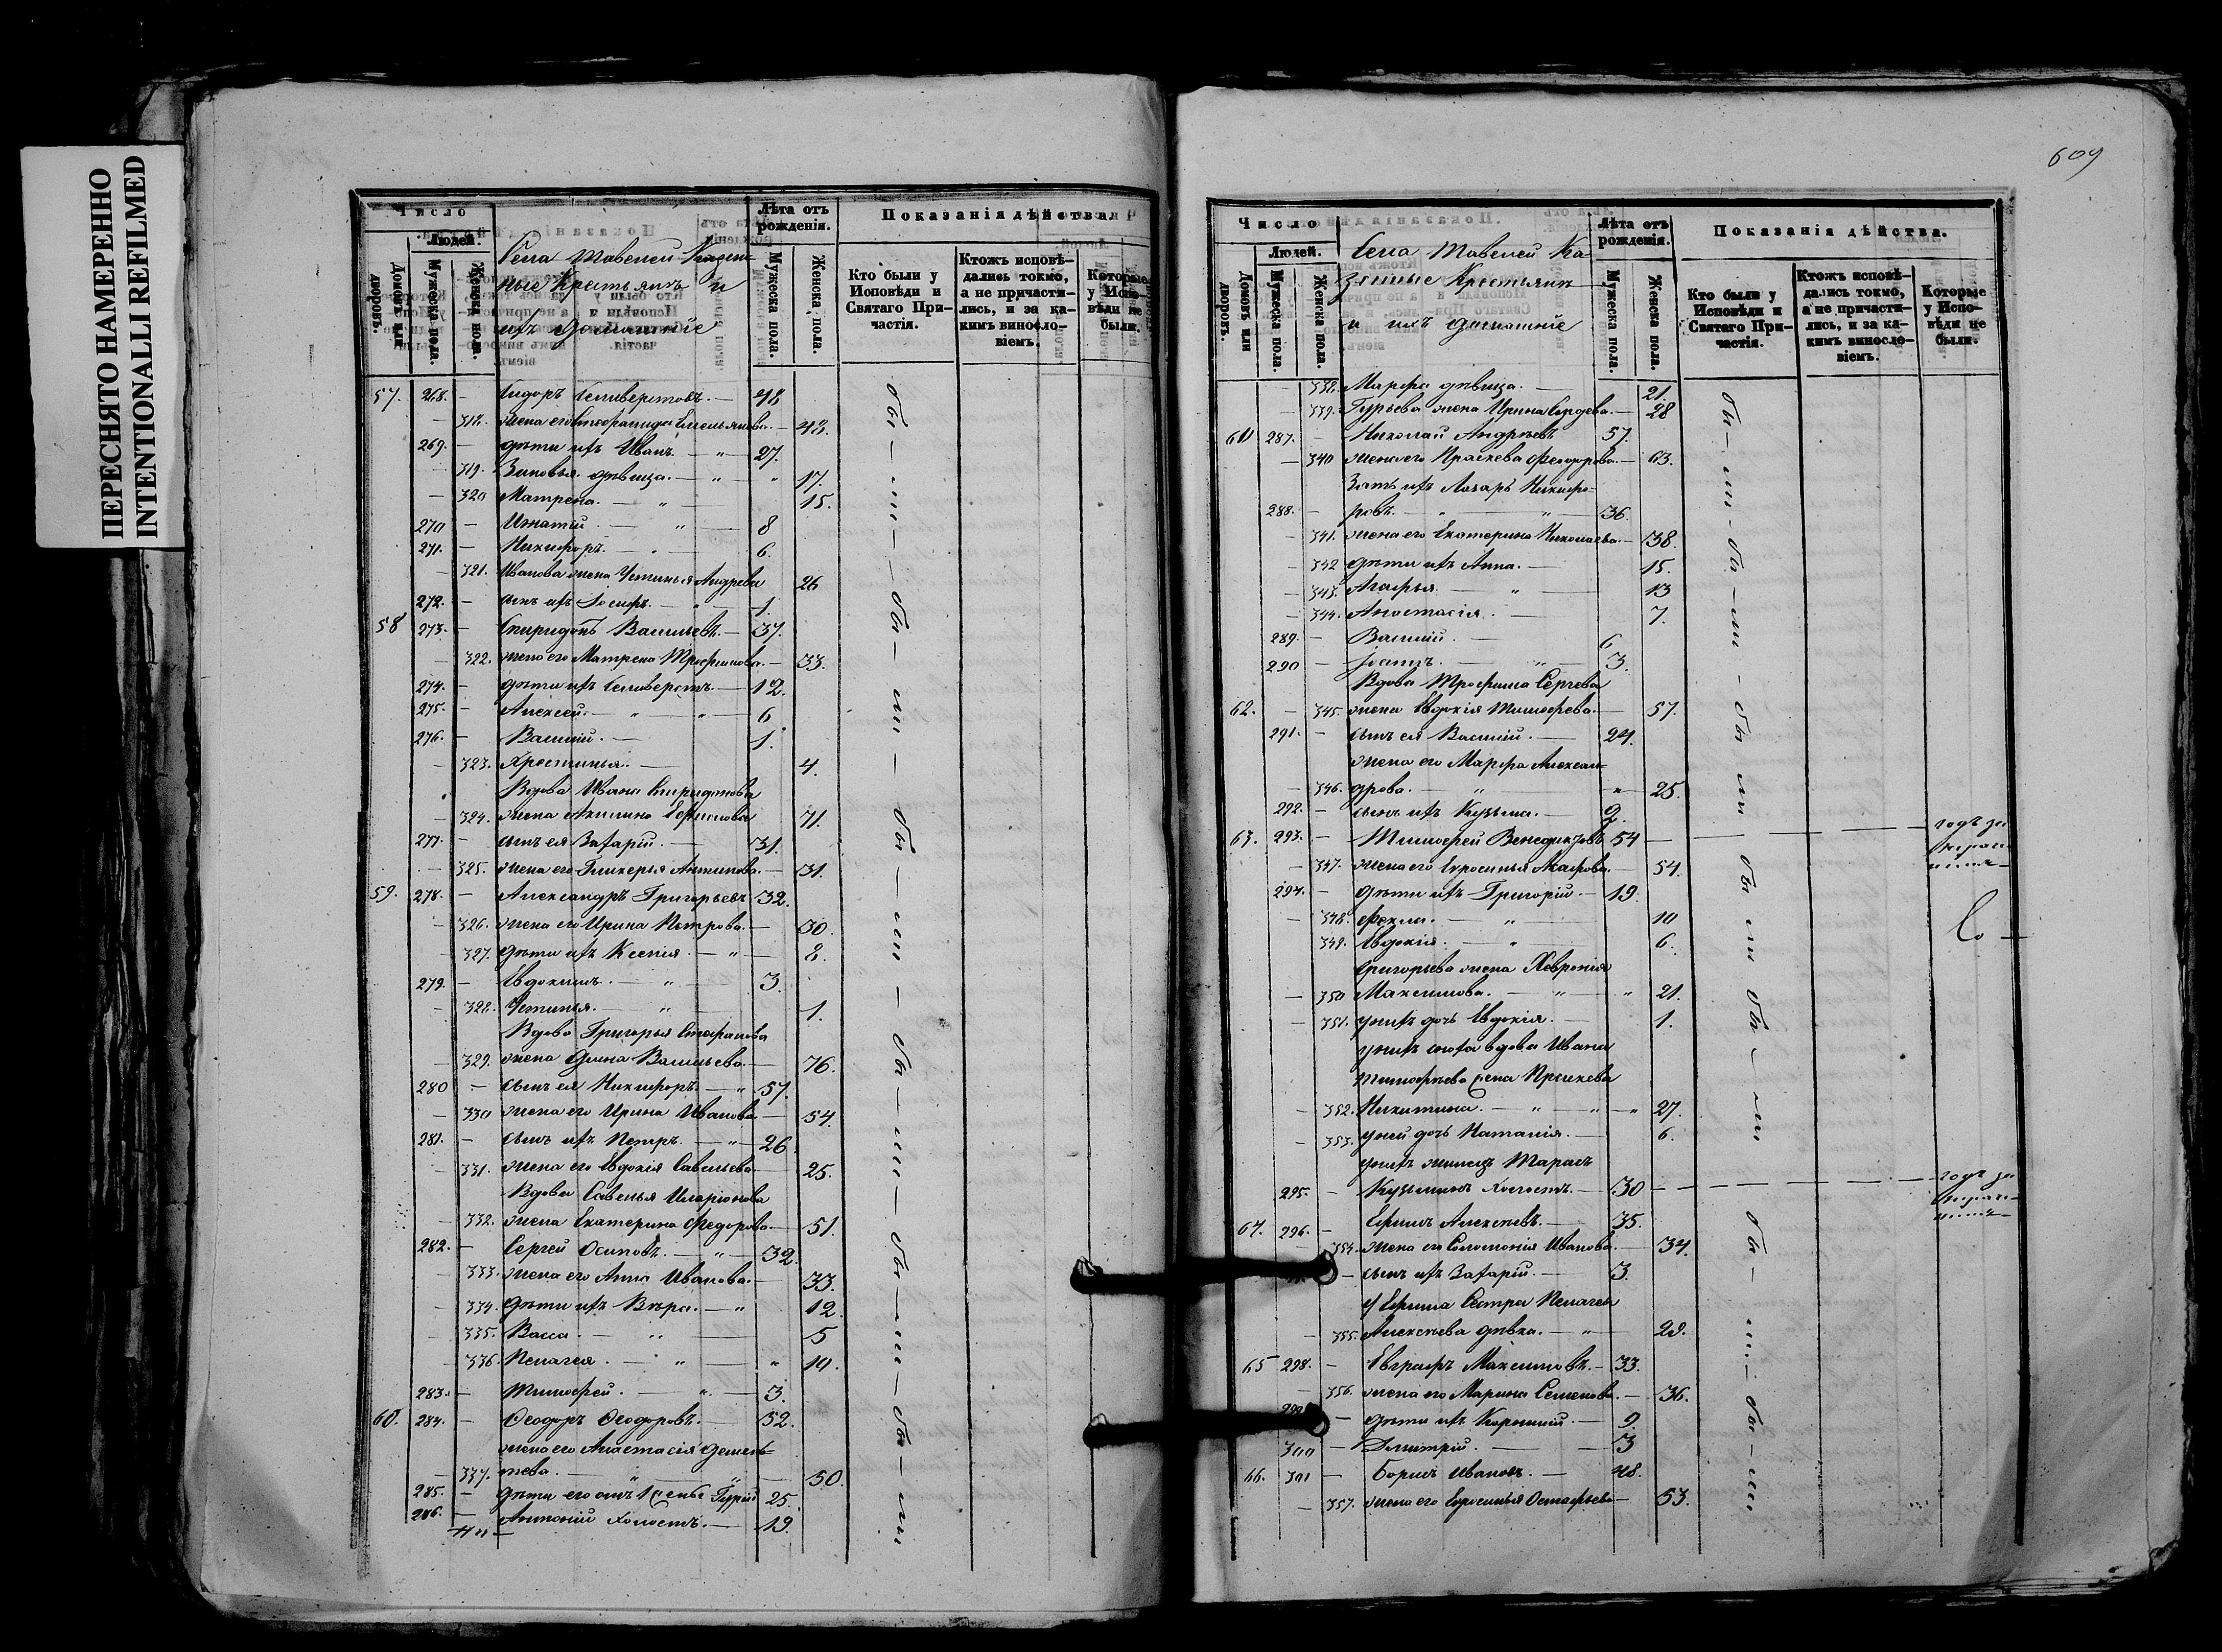 ПЕРЕСНЯТО НАМЕРЕННО
INTENTIONALLI REFILMED
Число
Людей.
Домовъ или дворовъ.
Мужеска пола.
Женска пола.
Села Тавелей Казен-
ные Крестьянъ и
ихъ домашніе
Лѣта отъ рожденія.
Мужеска пола.
Женска пола.
Показанія дѣйства
Кто были у Исповѣди и Святаго Причастія.
Ктожъ исповѣдались токмо, а не причастились, и за какимъ винословіемъ.
Которые у Исповѣди не были.
57. 268. — Сидоръ Селиверстовъ. — 48
— 318. жена его Стефанида Емельянова. — 43.
269. — дѣти ихъ Иванъ — 27.
— 319. Зиновья дѣвица. — 17.
— 320 Матрена. — 15.
270 — Игнатій — 8
271. — Никифоръ. — 6.
— 321. Иванова жена Устинья Андреева 26
272. — сынъ ихъ Іосифъ. — 1.
58 273. — Спиридонъ Васильевъ. — 37.
— 322. жена его Матрена Трофимова. — 33.
274. — дѣти ихъ Селиверстъ. — 12.
275. — Алексей. — 6
276. — Василій. — 1.
— 323. Хрестинья. — 4.
Вдова Ивана Спиридонова
— 324. жена Акилина Ефимова 71.
277. — сынъ ея Захарій. — 31.
— 325. жена его Гликерья Антипова. — 31.
59. 278. — Александръ Григорьевъ 32.
— 326. жена его Ирина Петрова. — 30.
— 327. дѣти ихъ Ксенія. — 8.
279. — Евдокимъ. — 3.
— 328. Устинья. — 1.
Вдова Григорья Стефанова
— 329. жена Васильева. — 76.
280 — сынъ ея Никифоръ. — 57.
— 330 жена его Ирина Иванова — 54.
281. — сынъ ихъ Петръ. — 26.
— 331. жена его Евдокія Савельева 25.
Вдова Савелья Иларіонова
— 332. жена Екатерина Федорова. — 51.
282. — Сергей Осиповъ. — 32.
— 333. жена его Анна Иванова. — 33.
— 334. дѣти ихъ Вѣра. — 12.
— 335. Васса. — 5
— 336. Пелагея. — 10.
283. — Тимофей. — 3.
60. 284. — Ѳеодоръ Ѳеодоровъ. — 52.
жена его Анастасія Демен-
— 337. тьева. — 50.
285. — дѣти его Гурій 25.
286. — Антоній холостъ. — 19.
бы — ли — бы — ли — бы — ли — бы — ли — бы — ли — бы — ли
609
Число
Людей.
Домовъ или дворовъ.
Мужеска пола.
Женска пола.
Села Тавелей Ка-
зенные Крестьянъ
и ихъ домашніе
Лѣта отъ рожденія.
Мужеска пола.
Женска пола.
Показанія дѣйства.
Кто были у Исповѣди и Святаго Причастія.
Ктожъ исповѣдались токмо, а не причастились, и за какимъ винословіемъ.
Которые у Исповѣди не были.
— 338. Марфа дѣвица. — 21.
— 339. Гурьева жена Ирина — 28
287. — Николай Андреевъ 57.
— 340 жена его Праскева Феодорова. — 63.
Зять ихъ Лазарь Никифо-
288. — ровъ. — 36.
— 341. жена его Екатерина Николаева. — 38.
— 342 дѣти ихъ Анна. — 15.
— 343. Агафья — 13
— 344. Анастасія. — 7.
289. — Василій. — 6
290 — — 3.
Вдова Трофима Сергеева
62. — 345. жена Евдокія Тимофеева. — 57.
291. — сынъ ея Василій. — 24.
жена его Марфа Алексан-
— 346. дрова. — 25.
292. — сынъ ихъ Кузьма. — 2.
63. 293. — Тимофей Венедиктовъ 54 —
— 347. жена его Евросинья — 54.
294. — дѣти ихъ Григорій. — 19.
— 348. Фекла. — 10
349. Евдокія. — 6.
Григорьева жена Хевронія
— 350 Максимова. — 21.
— 351. у нихъ дочь Евдокія. — 1.
у нихъ сноха вдова Ивана
Тимофеева жена Праскева
— 352. Никитина. — 27.
— 353. у ней дочь Наталія. — 6.
у нихъ жилецъ Тарасъ
295. — Кузьминъ холостъ. — 30 —
64. 296. — Ефимъ Алексеевъ. — 35.
354. жена его Соломонія Иванова. — 34.
— сынъ ихъ Захарій. — 3.
у Ефима Сестра Пелагея
— 355. Алексеева дѣвка. — 29.
65 298. — Евграфъ Максимовъ. — 33.
— 356. жена его Марина Семенова. — 36.
299 — дѣти ихъ Корнилій. — 9.
300 — Дмитрій. — 3
66. 301 — Борисъ Ивановъ. — 48.
— 357. жена его Евросинья Остафьева — 53.
бы — ли — бы — ли — бы ли
бы ли бы — ли
бы — ли — бы — ли